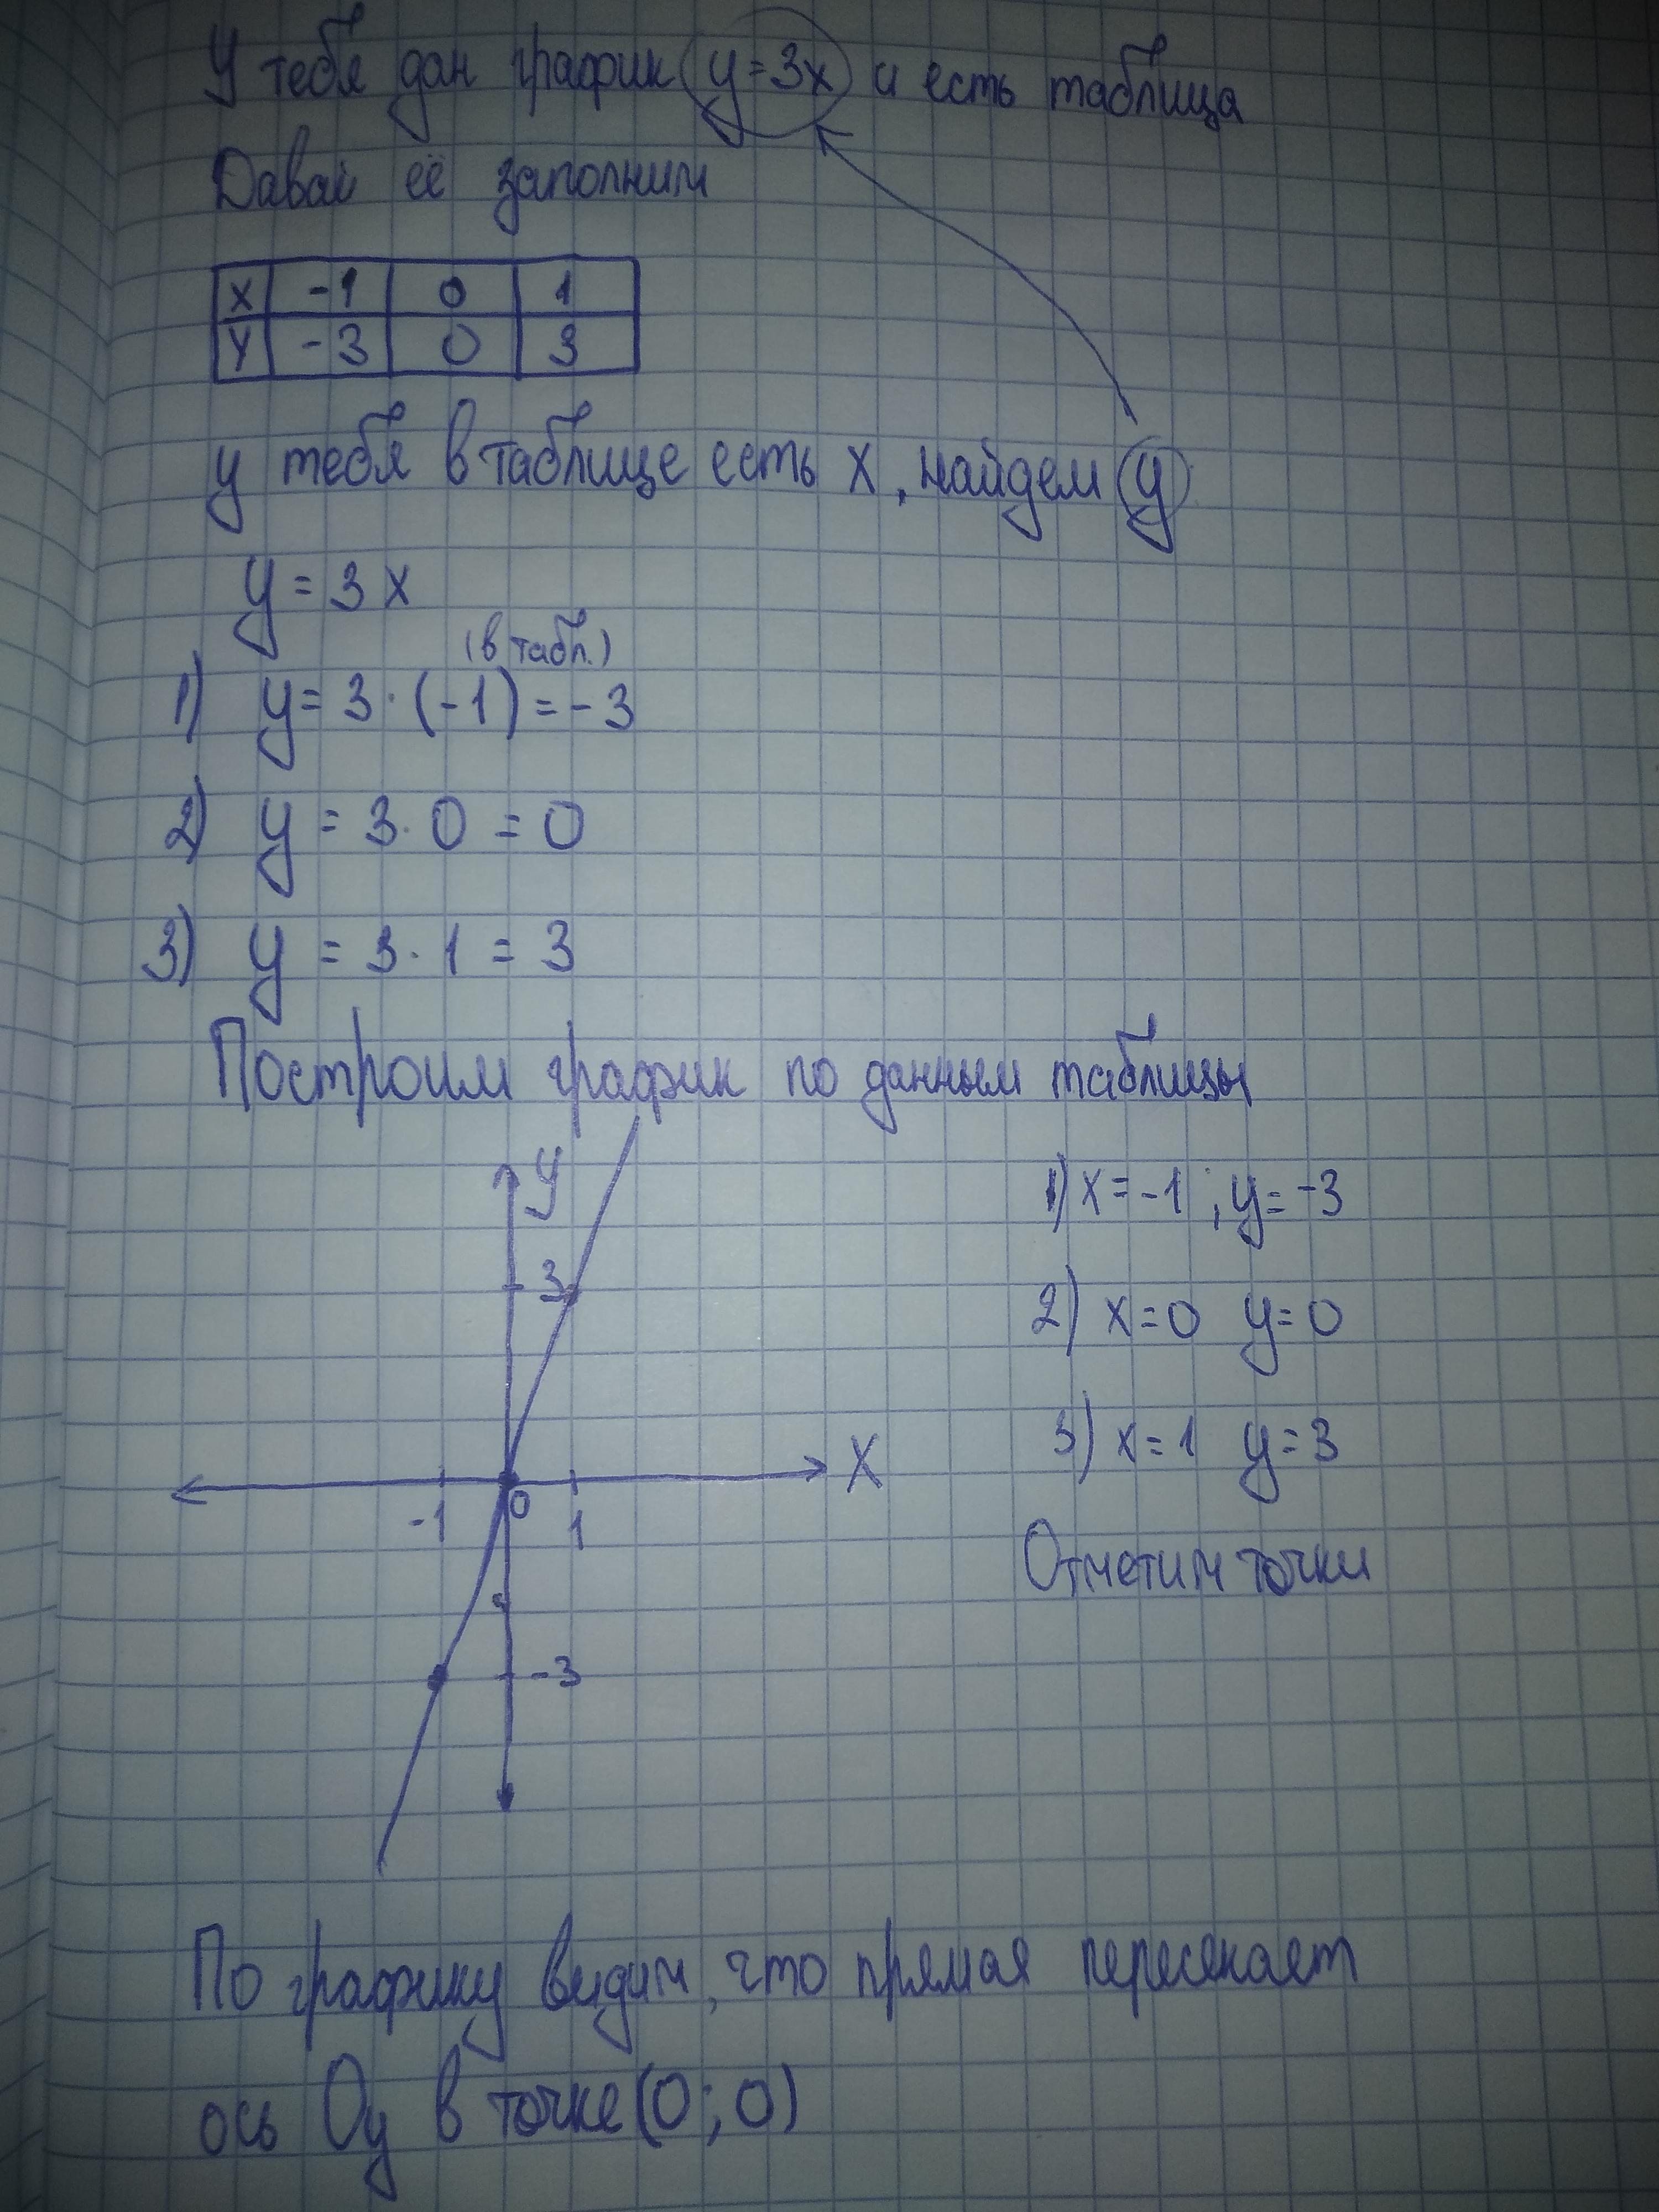 У тебя дан график y=3x и есть таблица
Давай её заполним
X -1 0 1
Y -3 0 3
у тебя в таблице есть x, найдем y
y = 3x
(в табл.)
1) y = 3·(-1) = -3
2) y = 3·0 = 0
3) y = 3·1 = 3
Построим график по данным таблицы
y
3
X
-1 0 1
-3
1) x=-1; y=-3
2) x=0 y=0
3) x=1 y=3
Отметим точки
По графику видим, что прямая пересекает
ось Oy в точке (0;0)